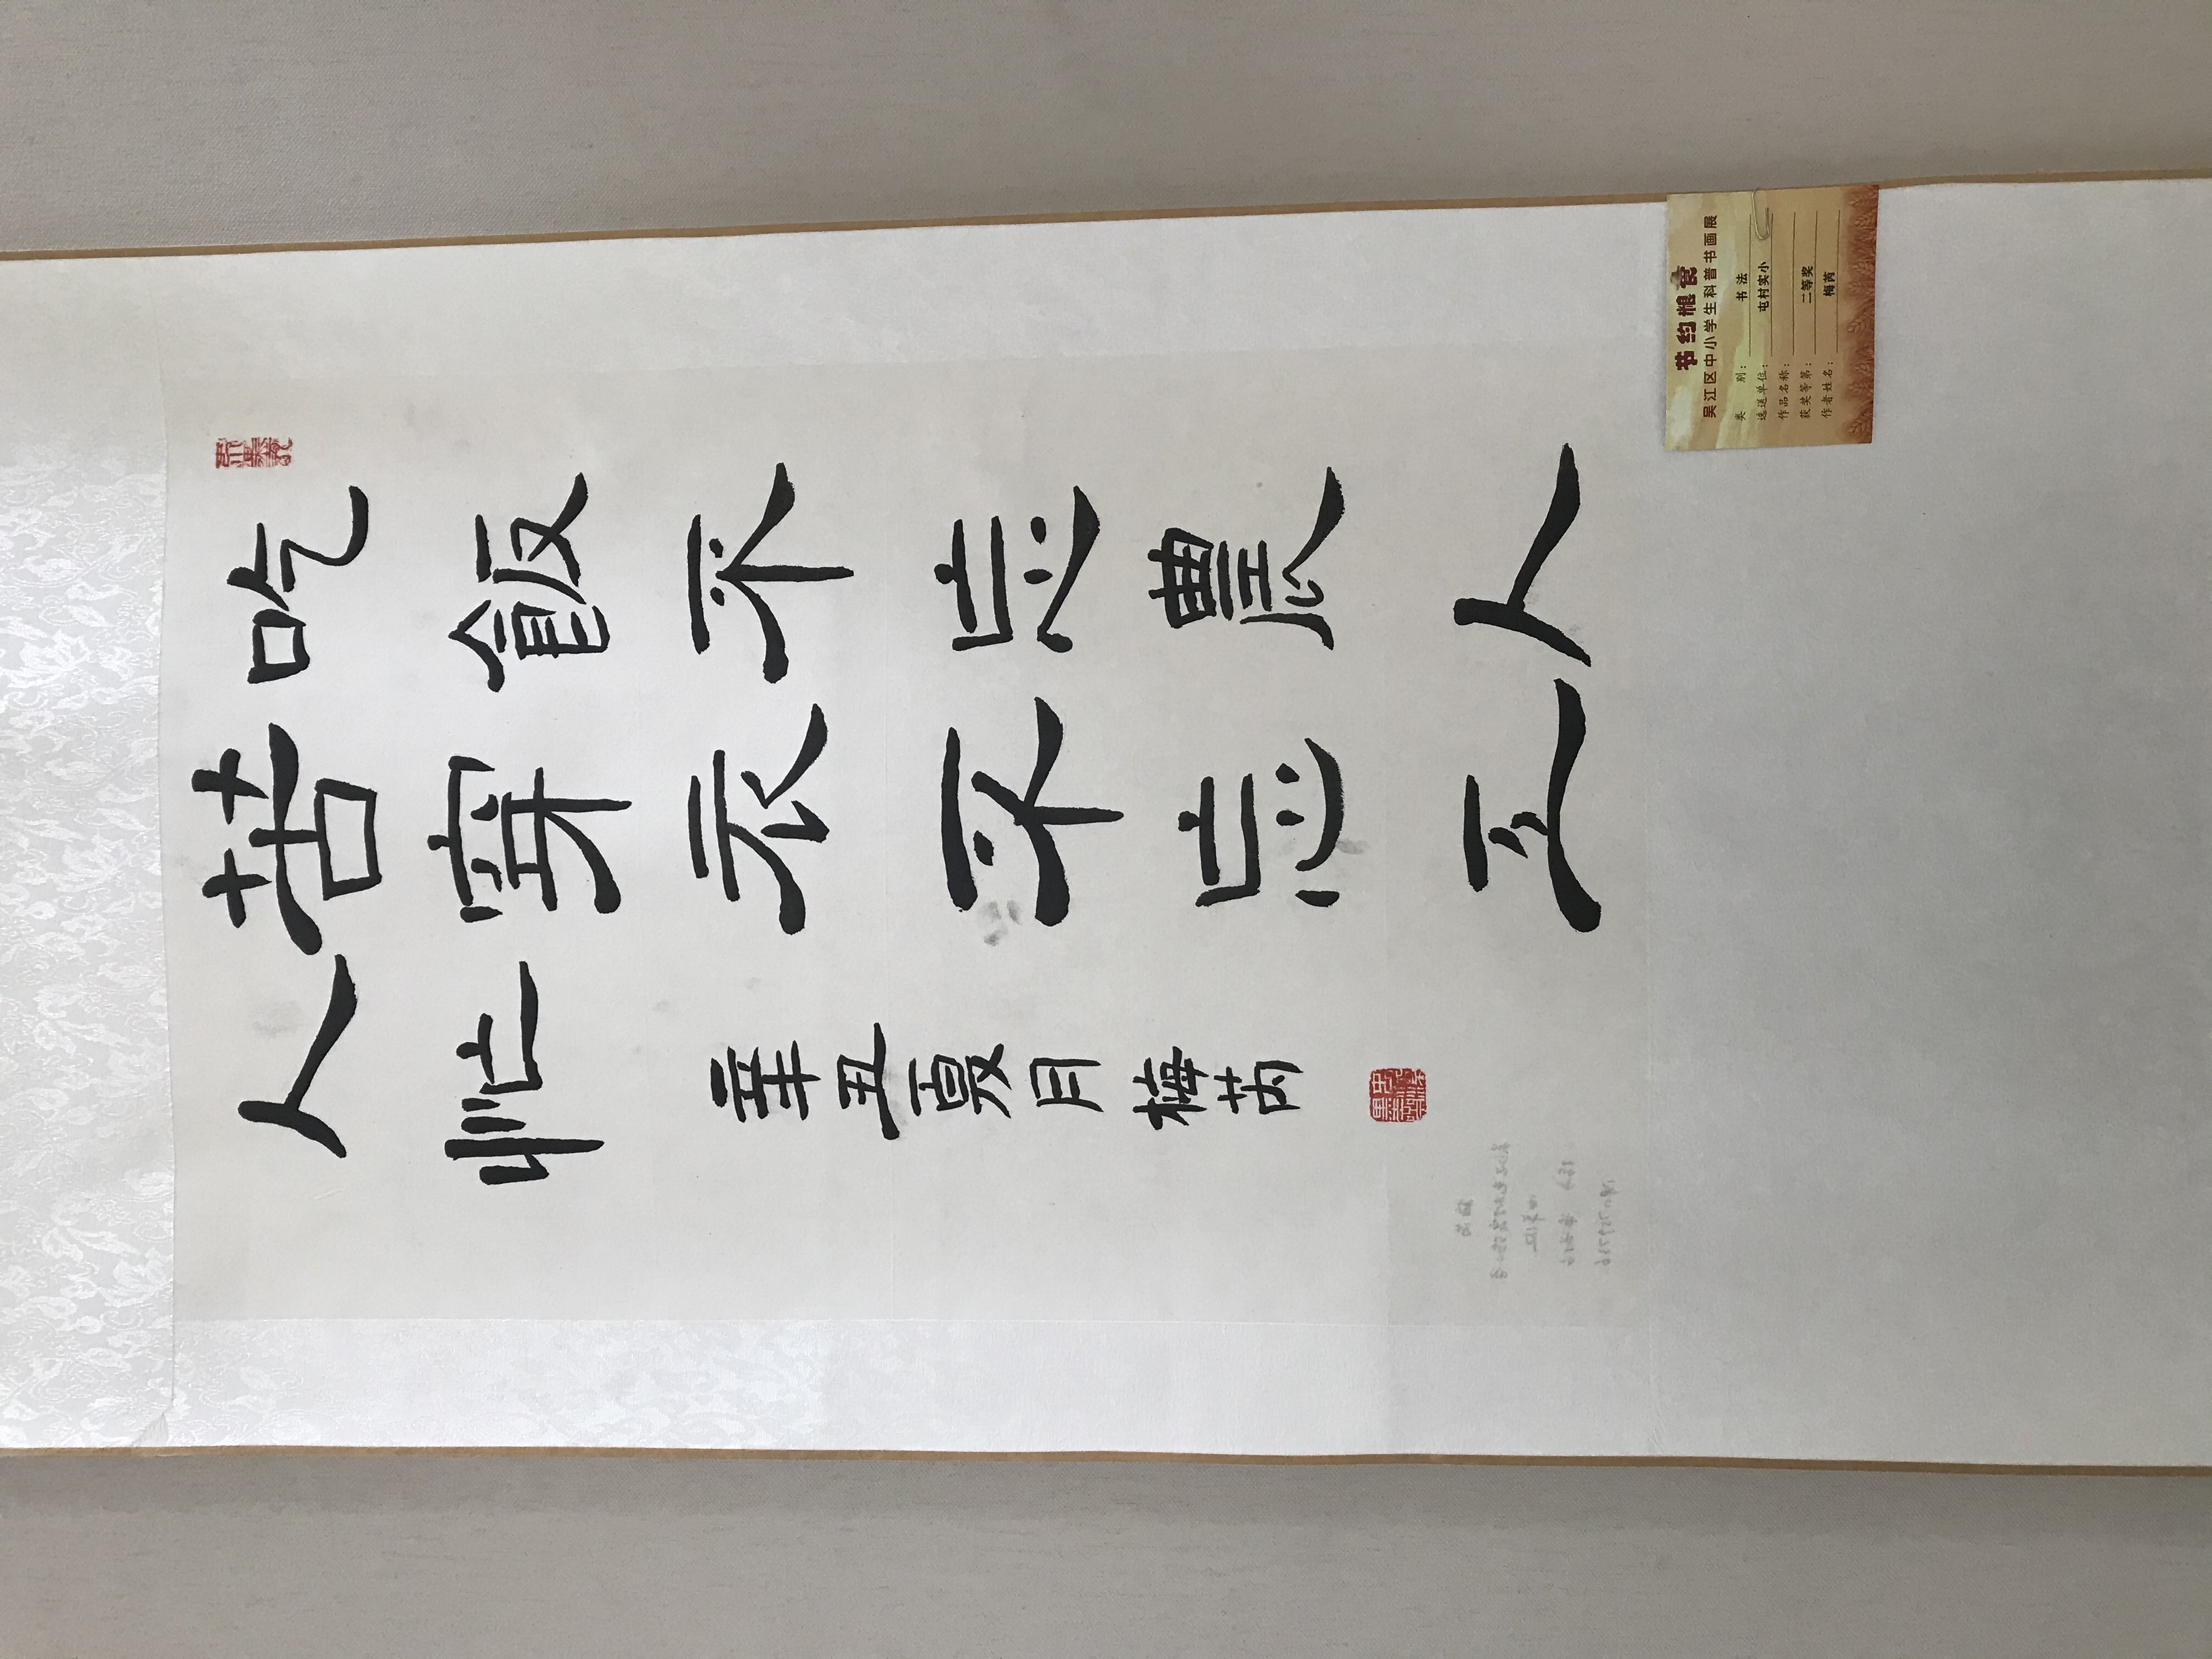 吃飯不忘農人
苦穿衣不忘工
人忙
辛丑夏月梅芮
节约粮食
吴江区中小学生科普书画展
类别：书法
选送单位：屯村实小
作品名称：
获奖等第：二等奖
作者姓名：梅芮